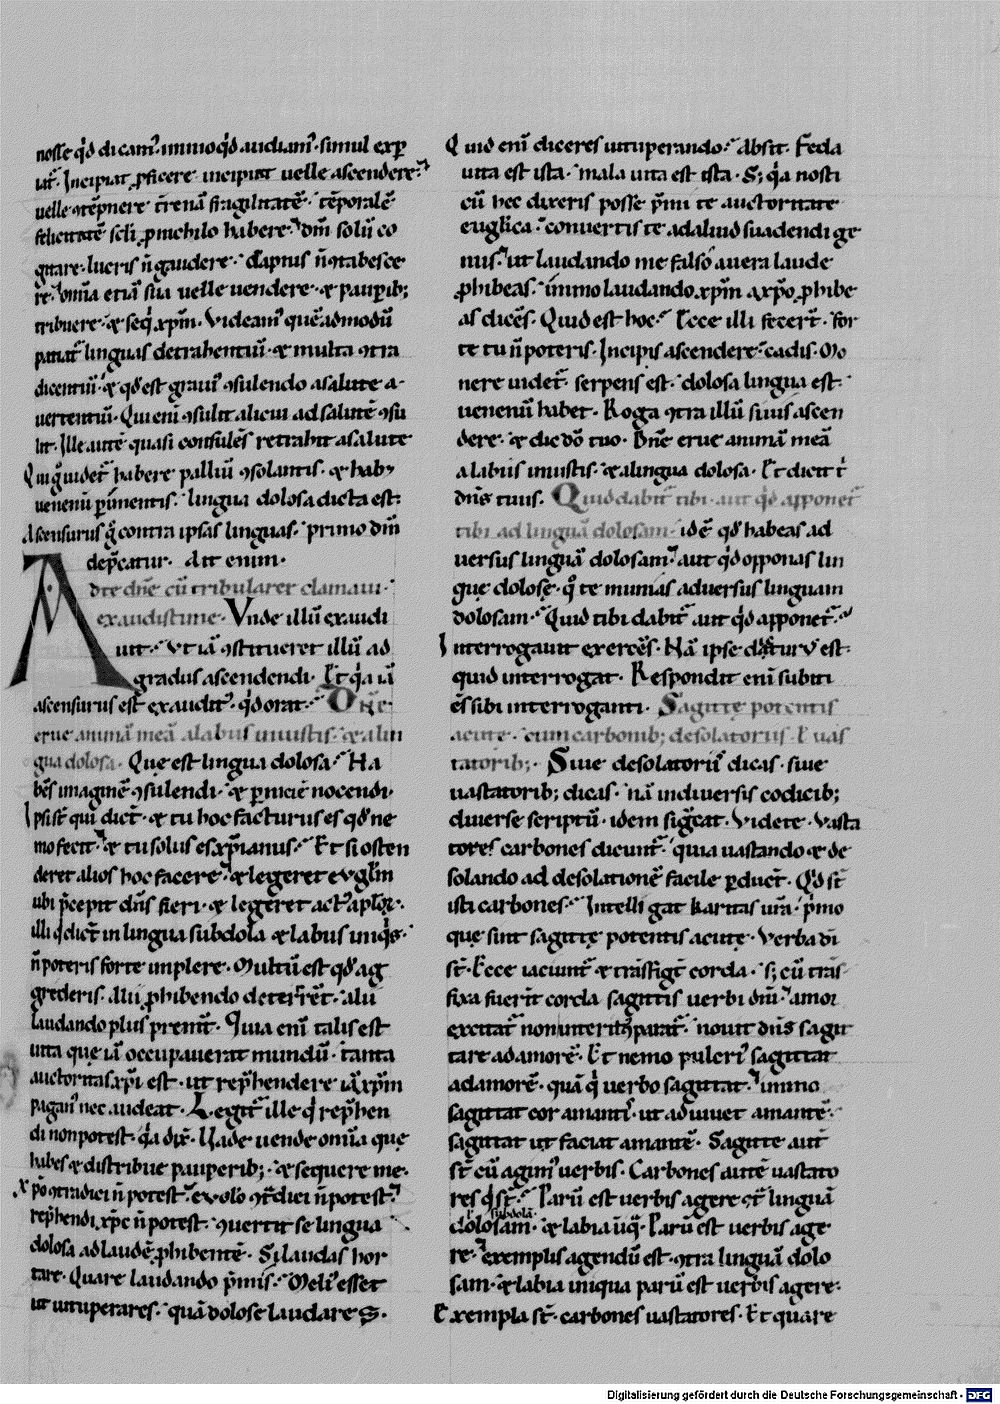 nosse qđ dicam᷎. immo qđ audiam᷎. simul exꝑ
ut᷎. Incipiat ꝓficere. incipiat uelle ascendere.
uelle ꝯtēpnere t̄renā fragilitatē. tēporalē
felicitatē sc̄li ꝓ nichilo habere. dm̄ solū co
gitare. lucris n̄ gaudere. Captus n̄ ꝯtabesce
re. omīa etiā sua uelle uendere. ⁊ pauꝑib;
tribuere. ⁊ seq̇ xp̄m. Videam᷎ quēadmodū
patiat᷎ linguas detrahentiū. ⁊ multa ꝯtra
dicentiū. ⁊ qđ est graui᷎ ꝯsulendo a salute a
uertentiū. Qui enī ꝯsulit alicui ad salutē ꝯsu
lit. Ille autē quasi consulēs retrahit a salute
Qui g̊ uidet᷎ habere palliū ꝯsolantis. ⁊ hab&
uenenū ꝑimentis. lingua dolosa dicta est.
Ascensurus g̊ contra ipsas linguas. primo dm̄
dep̄catur. Ait enim.
Ad te dn̄e cū tribularer clamaui.
exaudisti me. Vnde illū exaudi
uit. Vt iā ꝯstitueret illū ad
gradus ascendendi. Et q̇a iā
ascensurus est exaudit᷎. qđ orat. Dn̄e
erue animā meā a labiis iniustis. ⁊ a lin
gua dolosa. Que est lingua dolosa. Ha
bēs imaginē ꝯsulendi. ⁊ ꝑniciē nocendi.
Ipsi st̄ qui dict̄. ⁊ tu hoc facturus es qđ ne
mo fecit. ⁊ tu solus es xp̄ianus. Et si osten
deret alios hoc facere. ⁊ legeret euglīm
ubi p̄cepit dn̄s fieri. ⁊ legeret act᷎ aplōꝝ.
illi q̇ dict̄ in lingua subdola ⁊ labiis iniq̇s.
n̄ poteris forte implere. Multū est qđ ag
grederis. Alii ꝓhibendo deterrēt. alii
laudando plus premūt. Quia enī talis est
uita que iā occupauerat mundū. tanta
auctoritas xp̄i est. ut rep̄hendere iā xp̄m
pagan᷎ nec audeat. Legit᷎ ille q̇ rep̄hen
di non potest. q̇a dix̄. Uade uende omīa que
habes ⁊ distribue pauperib;. ⁊ sequere me.
Xp̄o ꝯtradici n̄ potest. euglō ꝯt̄dici n̄ potest.
rep̄hendi xp̄c n̄ potest. ꝯuertit se lingua
dolosa ad laudē ꝓhibentē. Si laudas hor
tare. Quare laudando p̄mis. Meli᷎ esset
ut uituperares. quā dolose laudares.
Quid enī diceres uituperando. Absit. Feda
uita est ista. mala uita est ista. S; q̇a nosti
cū hec dixeris posse p̄mi te auctoritate
euglīca. conuertis te ad aliud suadendi ge
nus. ut laudando me falso a uera laude
ꝓhibeas. immo laudando xp̄m a xp̄o ꝓhibe
as dicēs. Quid est hoc. Ecce illi fecer̄t. for
te tu n̄ poteris. Incipis ascendere. cadis. Mo
nere uidet᷎. serpens est. dolosa lingua est.
uenenū habet. Roga ꝯtra illū si uis ascen
dere. ⁊ dic dō tuo. Dn̄e erue animā meā
a labiis iniustis. ⁊ a lingua dolosa. Et dicit t̄
dn̄s tuus. Quid dabit᷎ tibi. aut qđ apponet᷎
tibi ad linguā dolosam. idē qđ habeas ad
uersus linguā dolosam. aut qđ opponas lin
gue dolose. q̊ te munias aduersus linguam
dolosam. Quid tibi dabit᷎ aut qđ apponet᷎.
Interrogauit exercēs. Nā ipse daturus est.
quid interrogat. Respondit enī subiti
ēs sibi interroganti. Sagitte potentis
acute. cum carbonib; desolatoriis. l᷎ uas
tatorib;. Siue desolatoriī dicas. siue
uastatorib; dicas. nā in diuersis codicib;
diuerse scriptū. idem sig̊cat. Videte. Vasta
tores carbones dicunt᷎. quia uastando ⁊ de
solando ad desolationē facile ꝑduct̄. Qđ st̄
isti carbones. Intelligat karitas ur̄a. p̄mo
que sint sagitte potentis acute. Verba dī
st̄. Ecce iaciunt᷎ ⁊ trāsfigt̄ corda. s; cū trās
fixa fuerīt corda sagittis uerbi dī. amor
excitat᷎ non interit᷎ parat᷎. nouit dn̄s sagit
tare ad amorē. Et nemo pulcri᷎ sagittat
ad amorē. quā q̇ uerbo sagittat. immo
sagittat cor amantis. ut adiuuet amantē.
sagittat ut faciat amantē. Sagitte aut̄
st̄ cū agim᷎ uerbis. Carbones autē uastato
res q̇ st̄. Parū est uerbis agere ꝯt̄ linguā
l᷎ subdolā
dolosam. ⁊ labia iniq̄. Parū est uerbis age
re. exemplis agendū est ꝯtra linguā dolo
sam. ⁊ labia iniqua parū est uerbis agere.
Exempla st̄. carbones uastatores. Et quare
Digitalisierung gefördert durch die Deutsche Forschungsgemeinschaft - DFG